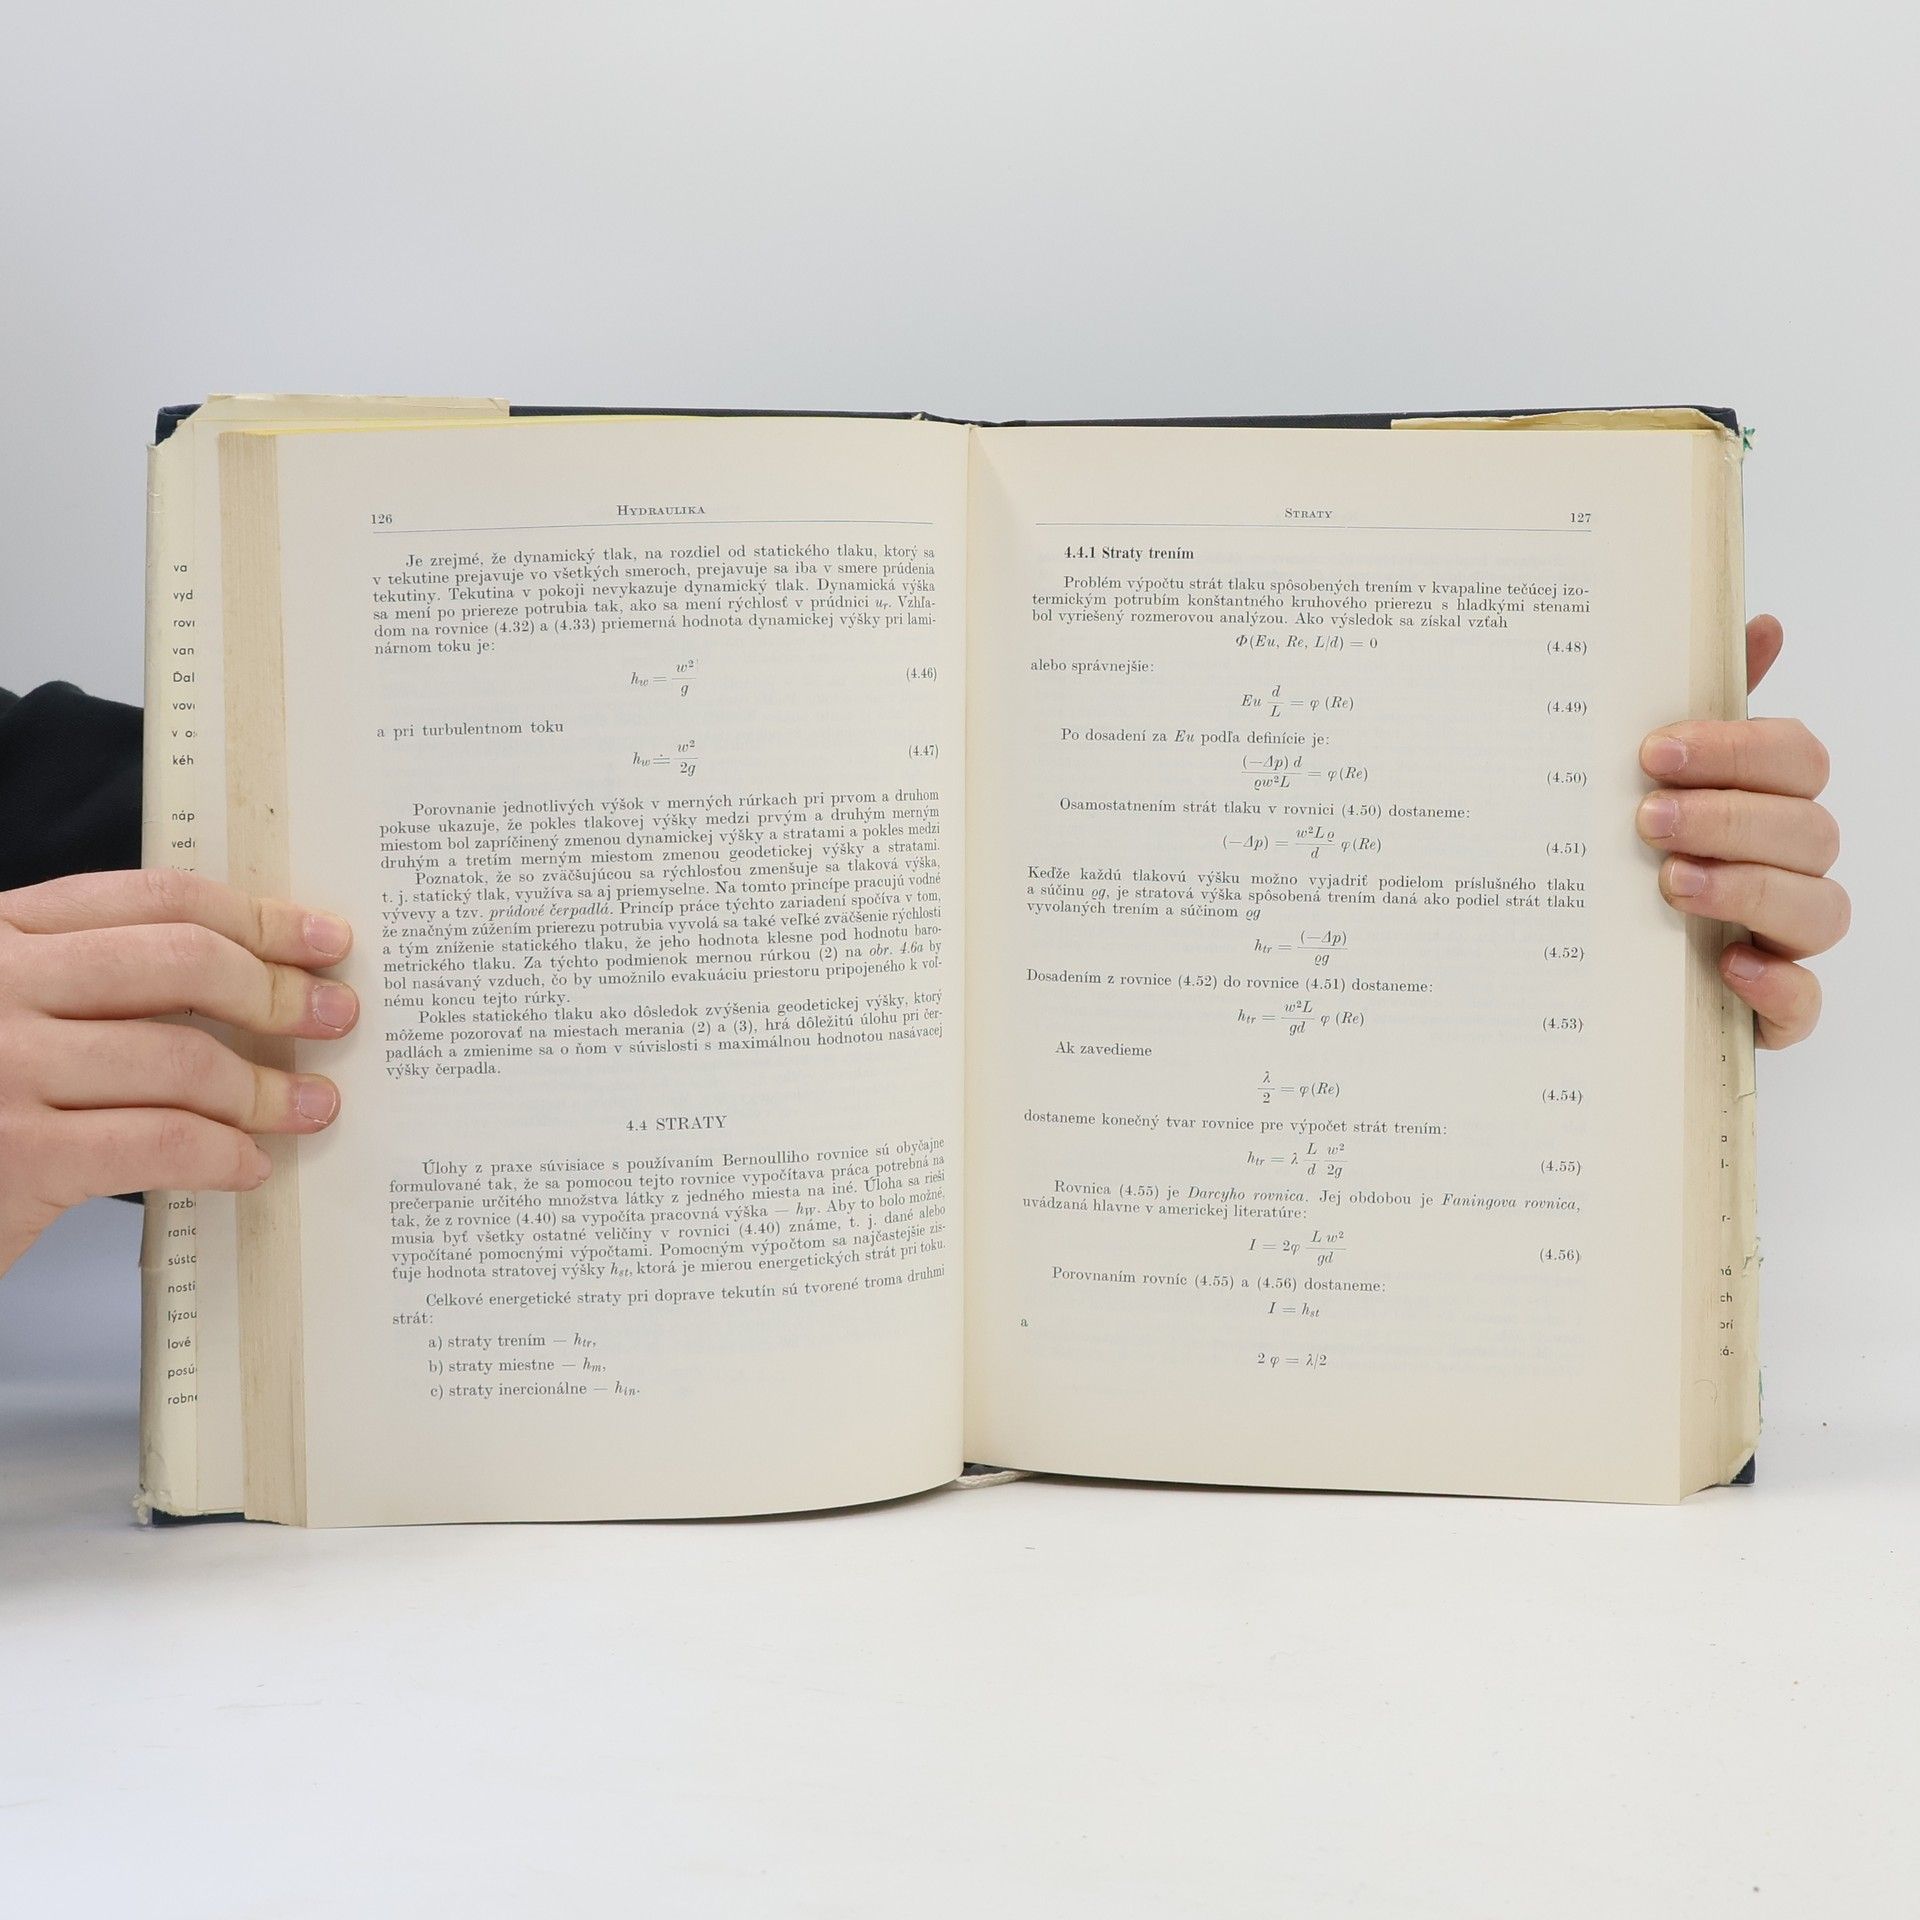 126
HYDRAULIKA
Je zrejmé, že dynamický tlak, na rozdiel od statického tlaku, ktorý sa
v tekutine prejavuje vo všetkých smeroch, prejavuje sa iba v smere prúdenia
tekutiny. Tekutina v pokoji nevykazuje dynamický tlak. Dynamická výška
sa mení po priereze potrubia tak, ako sa mení rýchlosť v prúdnici u_r. Vzhľa-
dom na rovnice (4.32) a (4.33) priemerná hodnota dynamickej výšky pri lami-
nárnom toku je:
h_w = w²/g (4.46)
a pri turbulentnom toku
h_w ≐ w²/2g (4.47)
Porovnanie jednotlivých výšok v merných rúrkach pri prvom a druhom
pokuse ukazuje, že pokles tlakovej výšky medzi prvým a druhým merným
miestom bol zapríčinený zmenou dynamickej výšky a stratami a pokles medzi
druhým a tretím merným miestom zmenou geodetickej výšky a stratami.
Poznatok, že so zväčšujúcou sa rýchlosťou zmenšuje sa tlaková výška,
t. j. statický tlak, využíva sa aj priemyselne. Na tomto princípe pracujú vodné
vývevy a tzv. prúdové čerpadlá. Princíp práce týchto zariadení spočíva v tom,
že značným zúžením prierezu potrubia vyvolá sa také veľké zväčšenie rýchlosti
a tým zníženie statického tlaku, že jeho hodnota klesne pod hodnotu baro-
metrického tlaku. Za týchto podmienok mernou rúrkou (2) na obr. 4.6a by
bol nasávaný vzduch, čo by umožnilo evakuáciu priestoru pripojeného k voľ-
nému koncu tejto rúrky.
Pokles statického tlaku ako dôsledok zvýšenia geodetickej výšky, ktorý
môžeme pozorovať na miestach merania (2) a (3), hrá dôležitú úlohu pri čer-
padlách a zmienime sa o ňom v súvislosti s maximálnou hodnotou nasávacej
výšky čerpadla.
4.4 STRATY
Úlohy z praxe súvisiace s používaním Bernoulliho rovnice sú obyčajne
formulované tak, že sa pomocou tejto rovnice vypočítava práca potrebná na
prečerpanie určitého množstva látky z jedného miesta na iné. Úloha sa rieši
tak, že z rovnice (4.40) sa vypočíta pracovná výška — h_W. Aby to bolo možné,
musia byť všetky ostatné veličiny v rovnici (4.40) známe, t. j. dané alebo
vypočítané pomocnými výpočtami. Pomocným výpočtom sa najčastejšie zis-
ťuje hodnota stratovej výšky h_st, ktorá je mierou energetických strát pri toku.
Celkové energetické straty pri doprave tekutín sú tvorené troma druhmi
strát:
a) straty trením — h_tr,
b) straty miestne — h_m,
c) straty inercionálne — h_in.
STRATY
127
4.4.1 Straty trením
Problém výpočtu strát tlaku spôsobených trením v kvapaline tečúcej izo-
termickým potrubím konštantného kruhového prierezu s hladkými stenami
bol vyriešený rozmerovou analýzou. Ako výsledok sa získal vzťah
Φ(Eu, Re, L/d) = 0 (4.48)
alebo správnejšie:
Eu d/L = φ (Re) (4.49)
Po dosadení za Eu podľa definície je:
(—Δp) d/ϱw²L = φ(Re) (4.50)
Osamostatnením strát tlaku v rovnici (4.50) dostaneme:
(—Δp) = w²Lϱ/d φ(Re) (4.51)
Keďže každú tlakovú výšku možno vyjadriť podielom príslušného tlaku
a súčinu ϱg, je stratová výška spôsobená trením daná ako podiel strát tlaku
vyvolaných trením a súčinom ϱg
h_tr = (—Δp)/ϱg (4.52)
Dosadením z rovnice (4.52) do rovnice (4.51) dostaneme:
h_tr = w²L/gd φ (Re) (4.53)
Ak zavedieme
λ/2 = φ(Re) (4.54)
dostaneme konečný tvar rovnice pre výpočet strát trením:
h_tr = λ L/d w²/2g (4.55)
Rovnica (4.55) je Darcyho rovnica. Jej obdobou je Faningova rovnica,
uvádzaná hlavne v americkej literatúre:
I = 2φ L w²/gd (4.56)
Porovnaním rovníc (4.55) a (4.56) dostaneme:
I = h_st
a
2 φ = λ/2